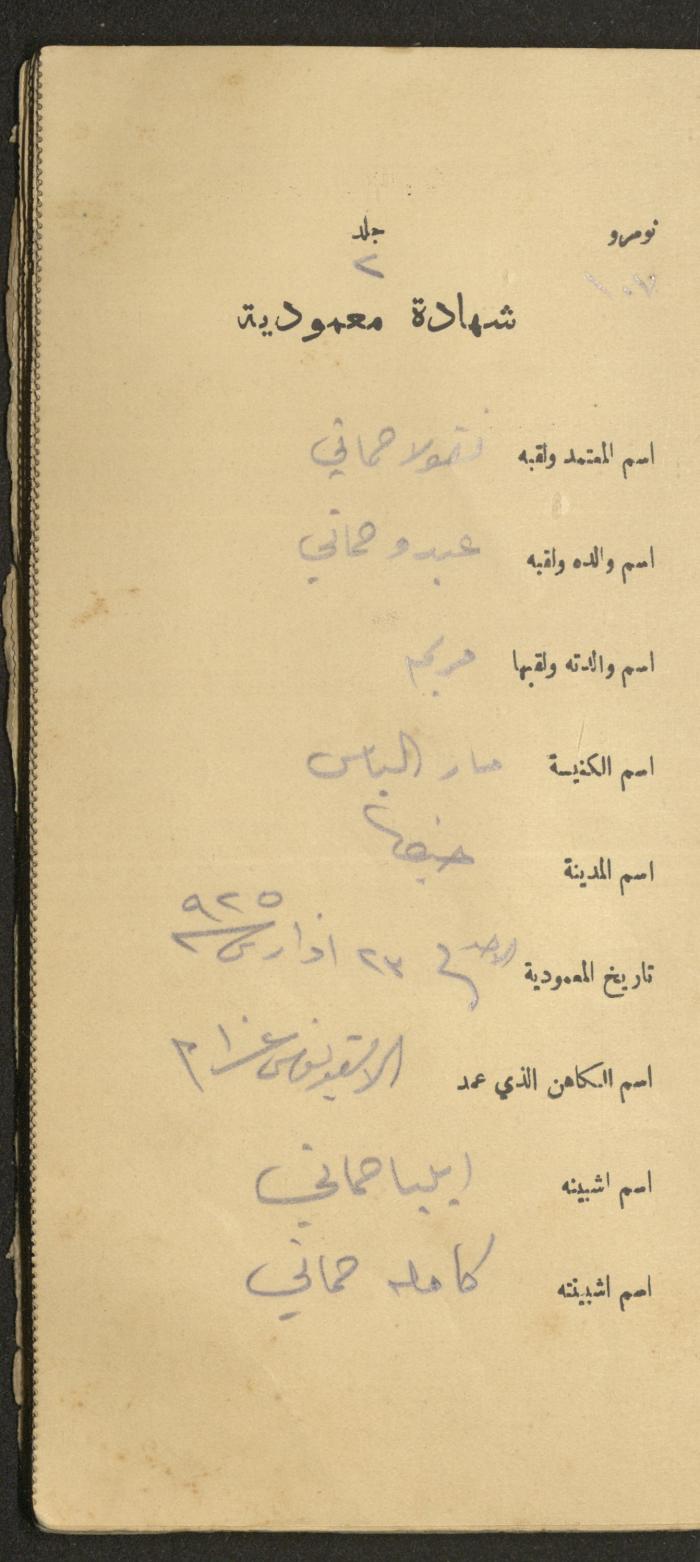 نومرو جلد
١٠٧ ٢
شهادة معمودية
اسم المعتمد ولقبه نقولا حماتي
اسم والده ولقبه عبدو حماتي
اسم والدته ولقبها مريم
اسم الكنيسة مار الياس
اسم المدينة حيفا
٩٢٥
تاريخ المعمودية الاحد في ٢٣ اذار
اسم الكاهن الذي عمد
اسم اشبينه ايليا حماتي
اسم اشبينته كامله حماتي